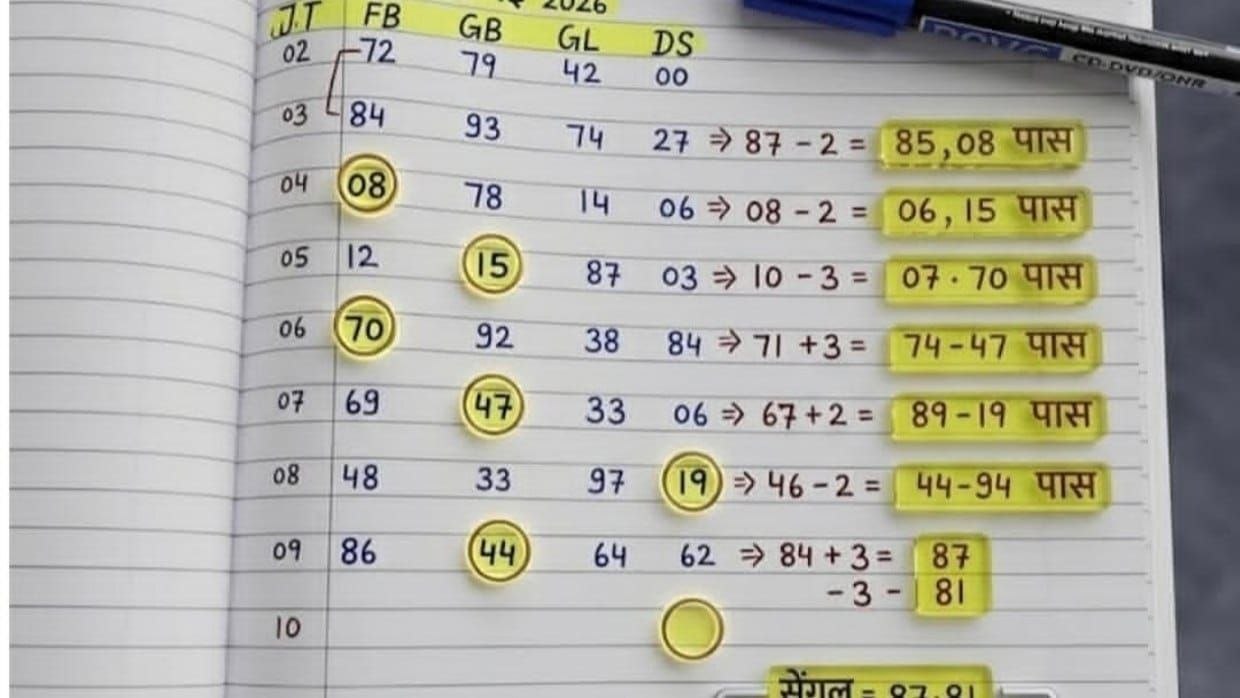 2026
J.T FB GB GL DS
02 72 79 42 00
03 84 93 74 27 ⇒ 87 - 2 = 85,08 पास
04 08 78 14 06 ⇒ 08 - 2 = 06,15 पास
05 12 15 87 03 ⇒ 10 - 3 = 07·70 पास
06 70 92 38 84 ⇒ 71 +3 = 74-47 पास
07 69 47 33 06 ⇒ 67+2 = 89-19 पास
08 48 33 97 19 ⇒ 46-2 = 44-94 पास
09 86 44 64 62 ⇒ 84+3= 87
-3 - 81
10
सेंगल = 87.81
CD-DVD/OHR